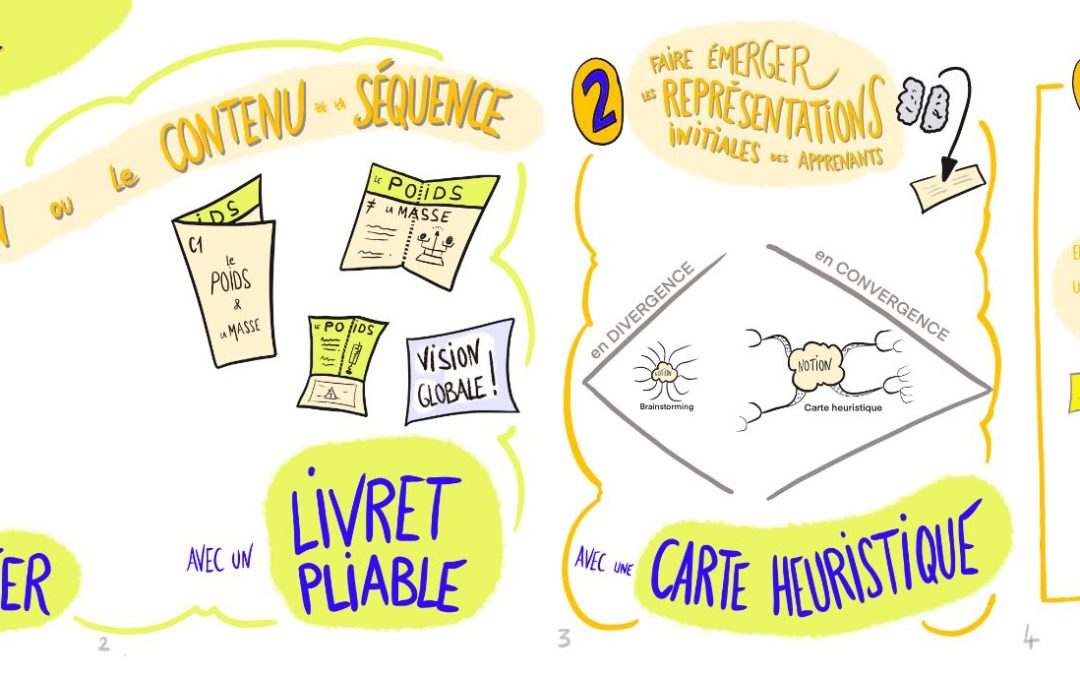 ou le CONTENU DE LA SÉQUENCE
iDS
C1
le
POIDS
&
LA MASSE
LE POIDS
≠ LA MASSE
LE POIDS
VISION
GLOBALE !
AVEC UN
LIVRET
PLIABLE
ER
2
2
FAIRE ÉMERGER
LES REPRÉSENTATIONS
INITIALES DES APPRENANTS
en DIVERGENCE
en CONVERGENCE
NOTION
Brainstorming
NOTION
Carte heuristique
AVEC UNE
CARTE HEURISTIQUE
3
4